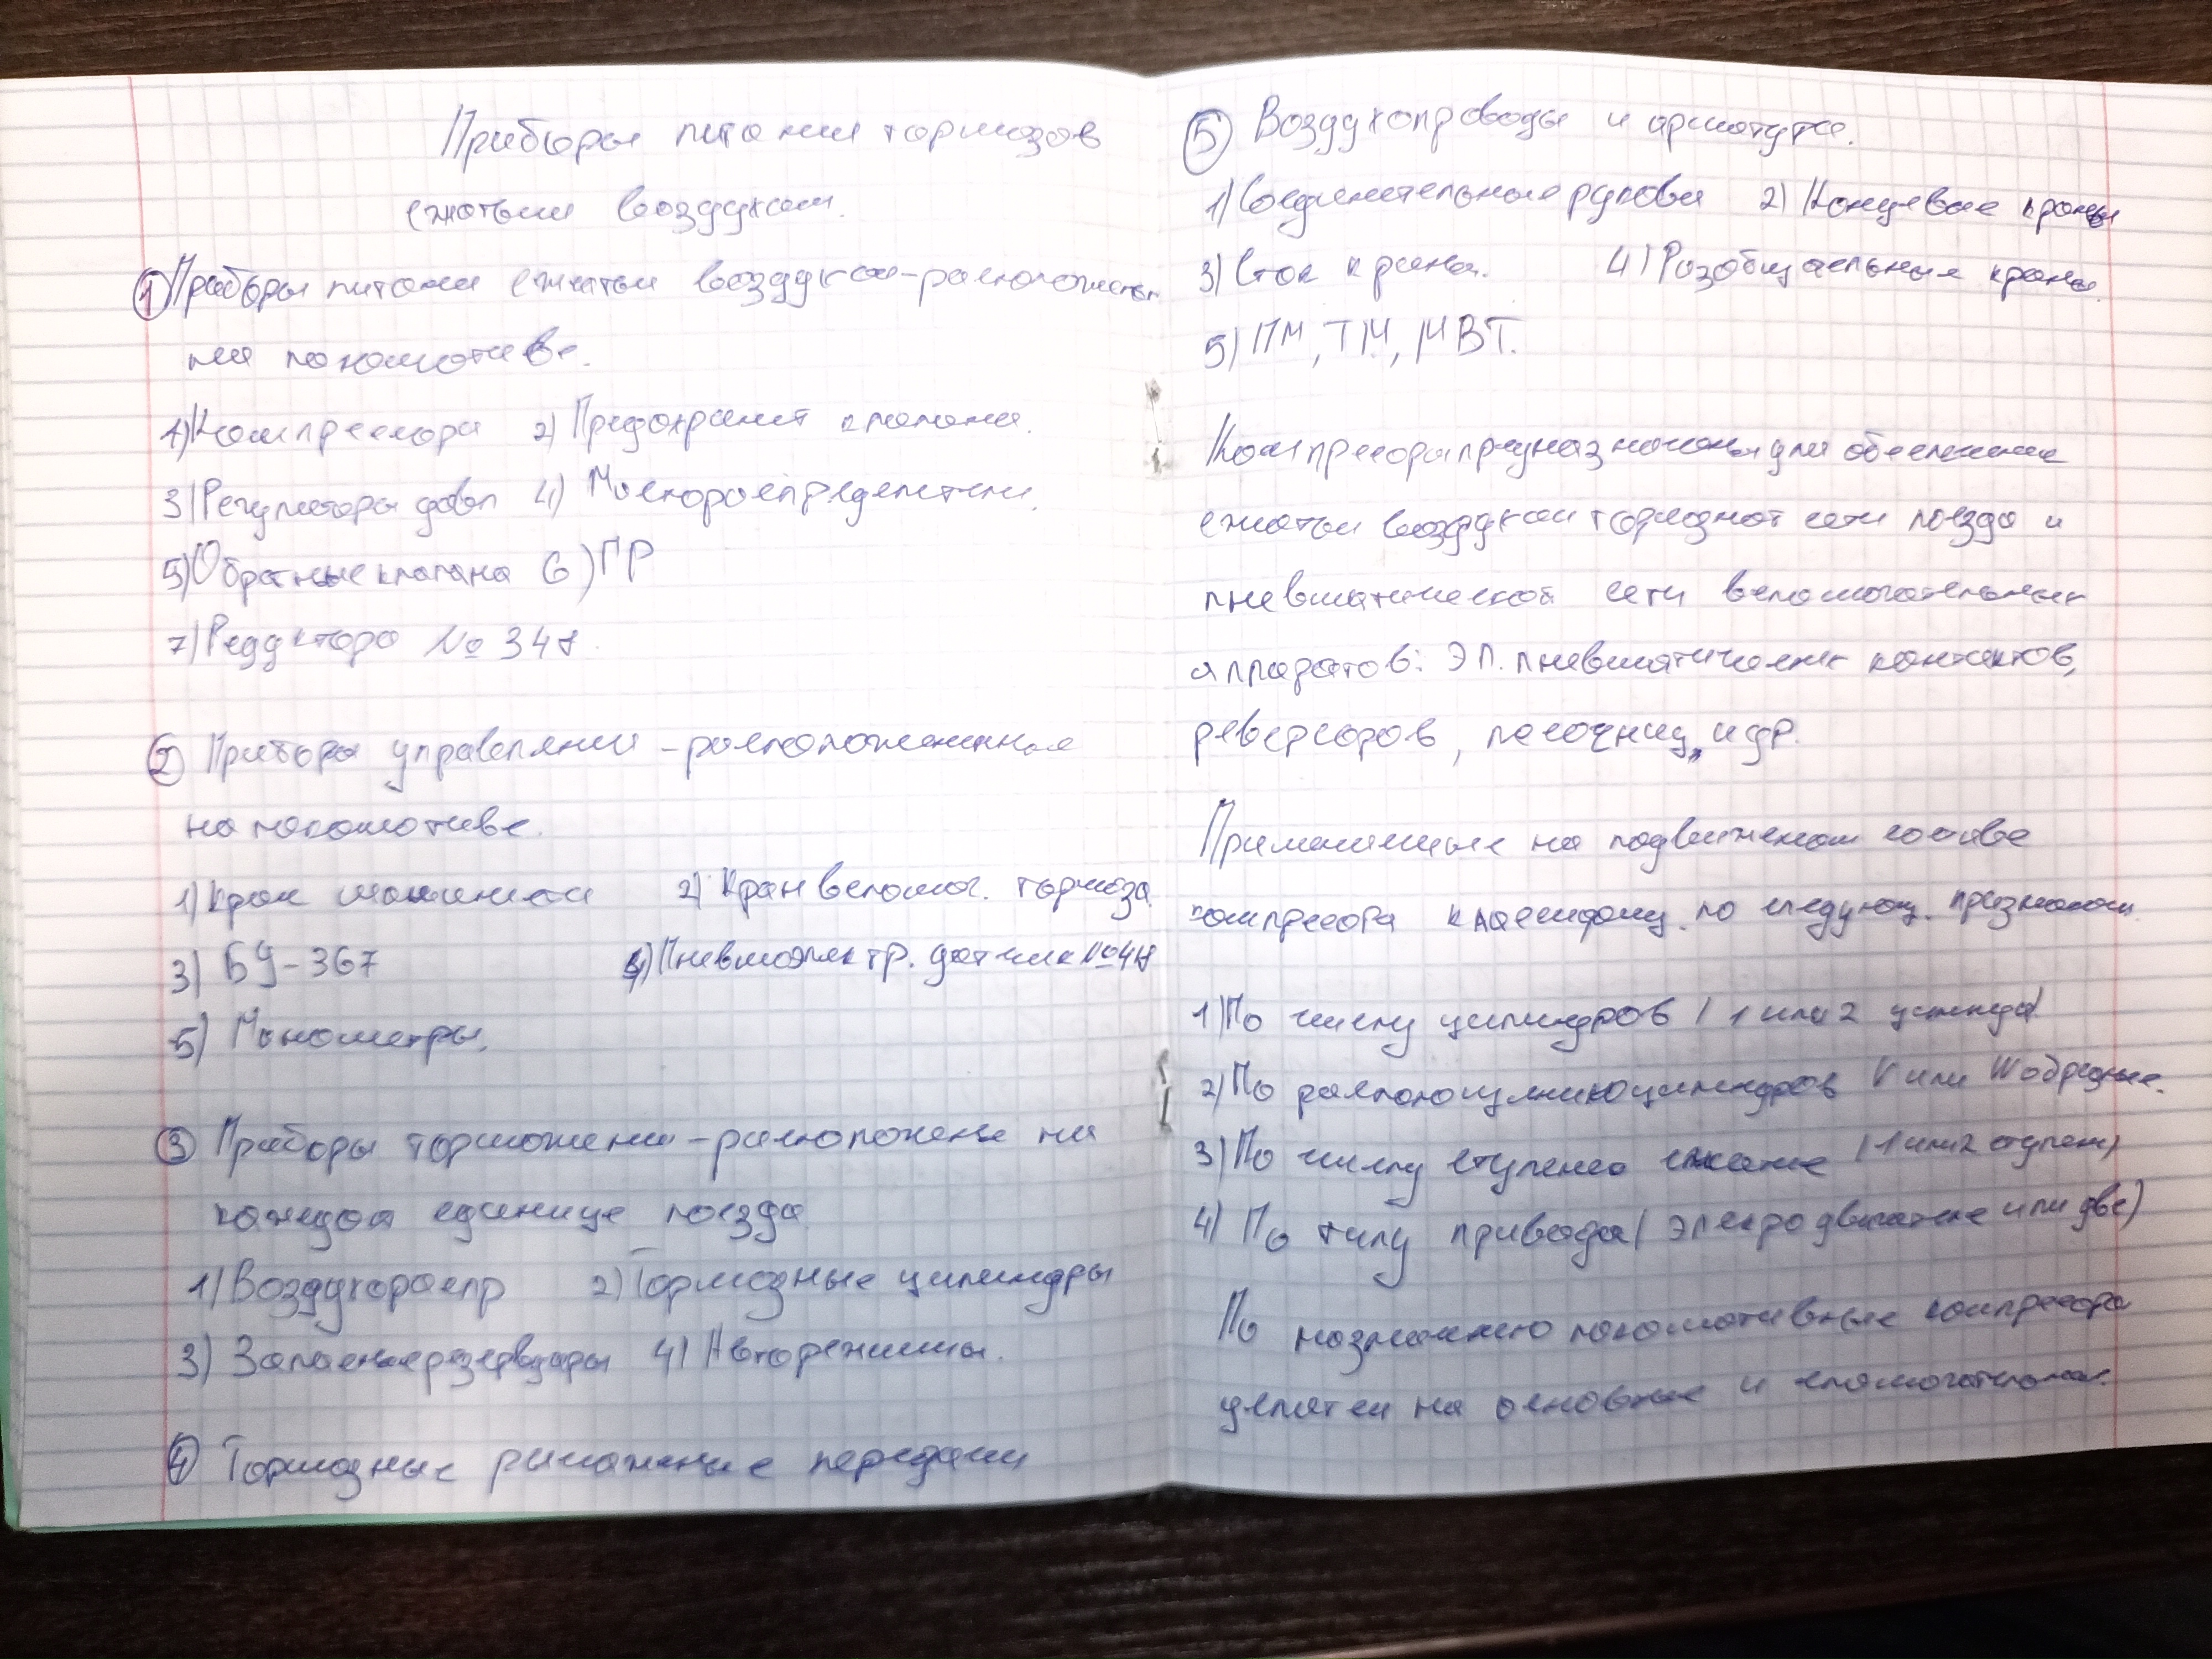 Приборы питания тормозов
сжатым воздухом.
① Приборы питания сжатым воздухом - расположены
на локомотиве.
1) Компрессора 2) Предохранит клапана.
3) Регуляторы давл 4) Маслораспределители.
5) Обратные клапана 6) ГР
7) Редуктора № 348.
② Приборы управления - расположенные
на локомотиве.
1) Кран машиниста 2) Кран вспомог. тормоза
3) БУ-367 4) Пневмоэлектр. датчик №418
5) Манометры.
③ Приборы торможения - расположены на
каждой единице поезда
1) Воздухораспр 2) Тормозные цилиндры
3) Запасные резервуары 4) Авторежимы.
④ Тормозные рычажные передачи
⑤ Воздухопроводы и арматура.
1) Соединительные рукова 2) Концевые краны
3) Сток крана. 4) Разобщательные краны.
5) ПМ, ТМ, МВТ.
Компресора предназначены для обеспечение
сжатым воздухом тормозной сети поезда и
пневматической сети вспомогательных
аппаратов: ЭП. пневматических контактов,
реверсоров, песочниц, и др.
Применимые на подвиженом составе
компресора по следующ. признакам
1) По числу цилиндров (1 или 2
2) По цилиндров V или W образные.
3) По числу ступеней сжатие (1 или 2 ступени)
4) По типу привода (электродвигателе или две)
По назначению локомотивные компресора
делятся на основные и